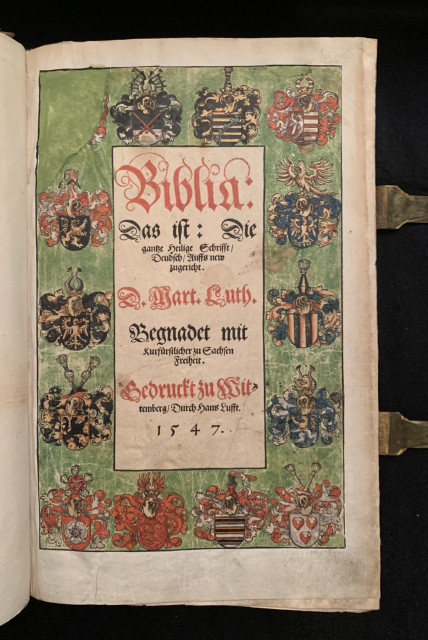 Biblia:
Das ist: Die
gantze Heilige Schrifft/
Deudsch/ Auffs new
zugericht.
D. Mart. Luth.
Begnadet mit
Kurfürstlicher zu Sachsen
Freiheit.
Gedruckt zu Wit-
temberg/ Durch Hans Lufft.
1547.